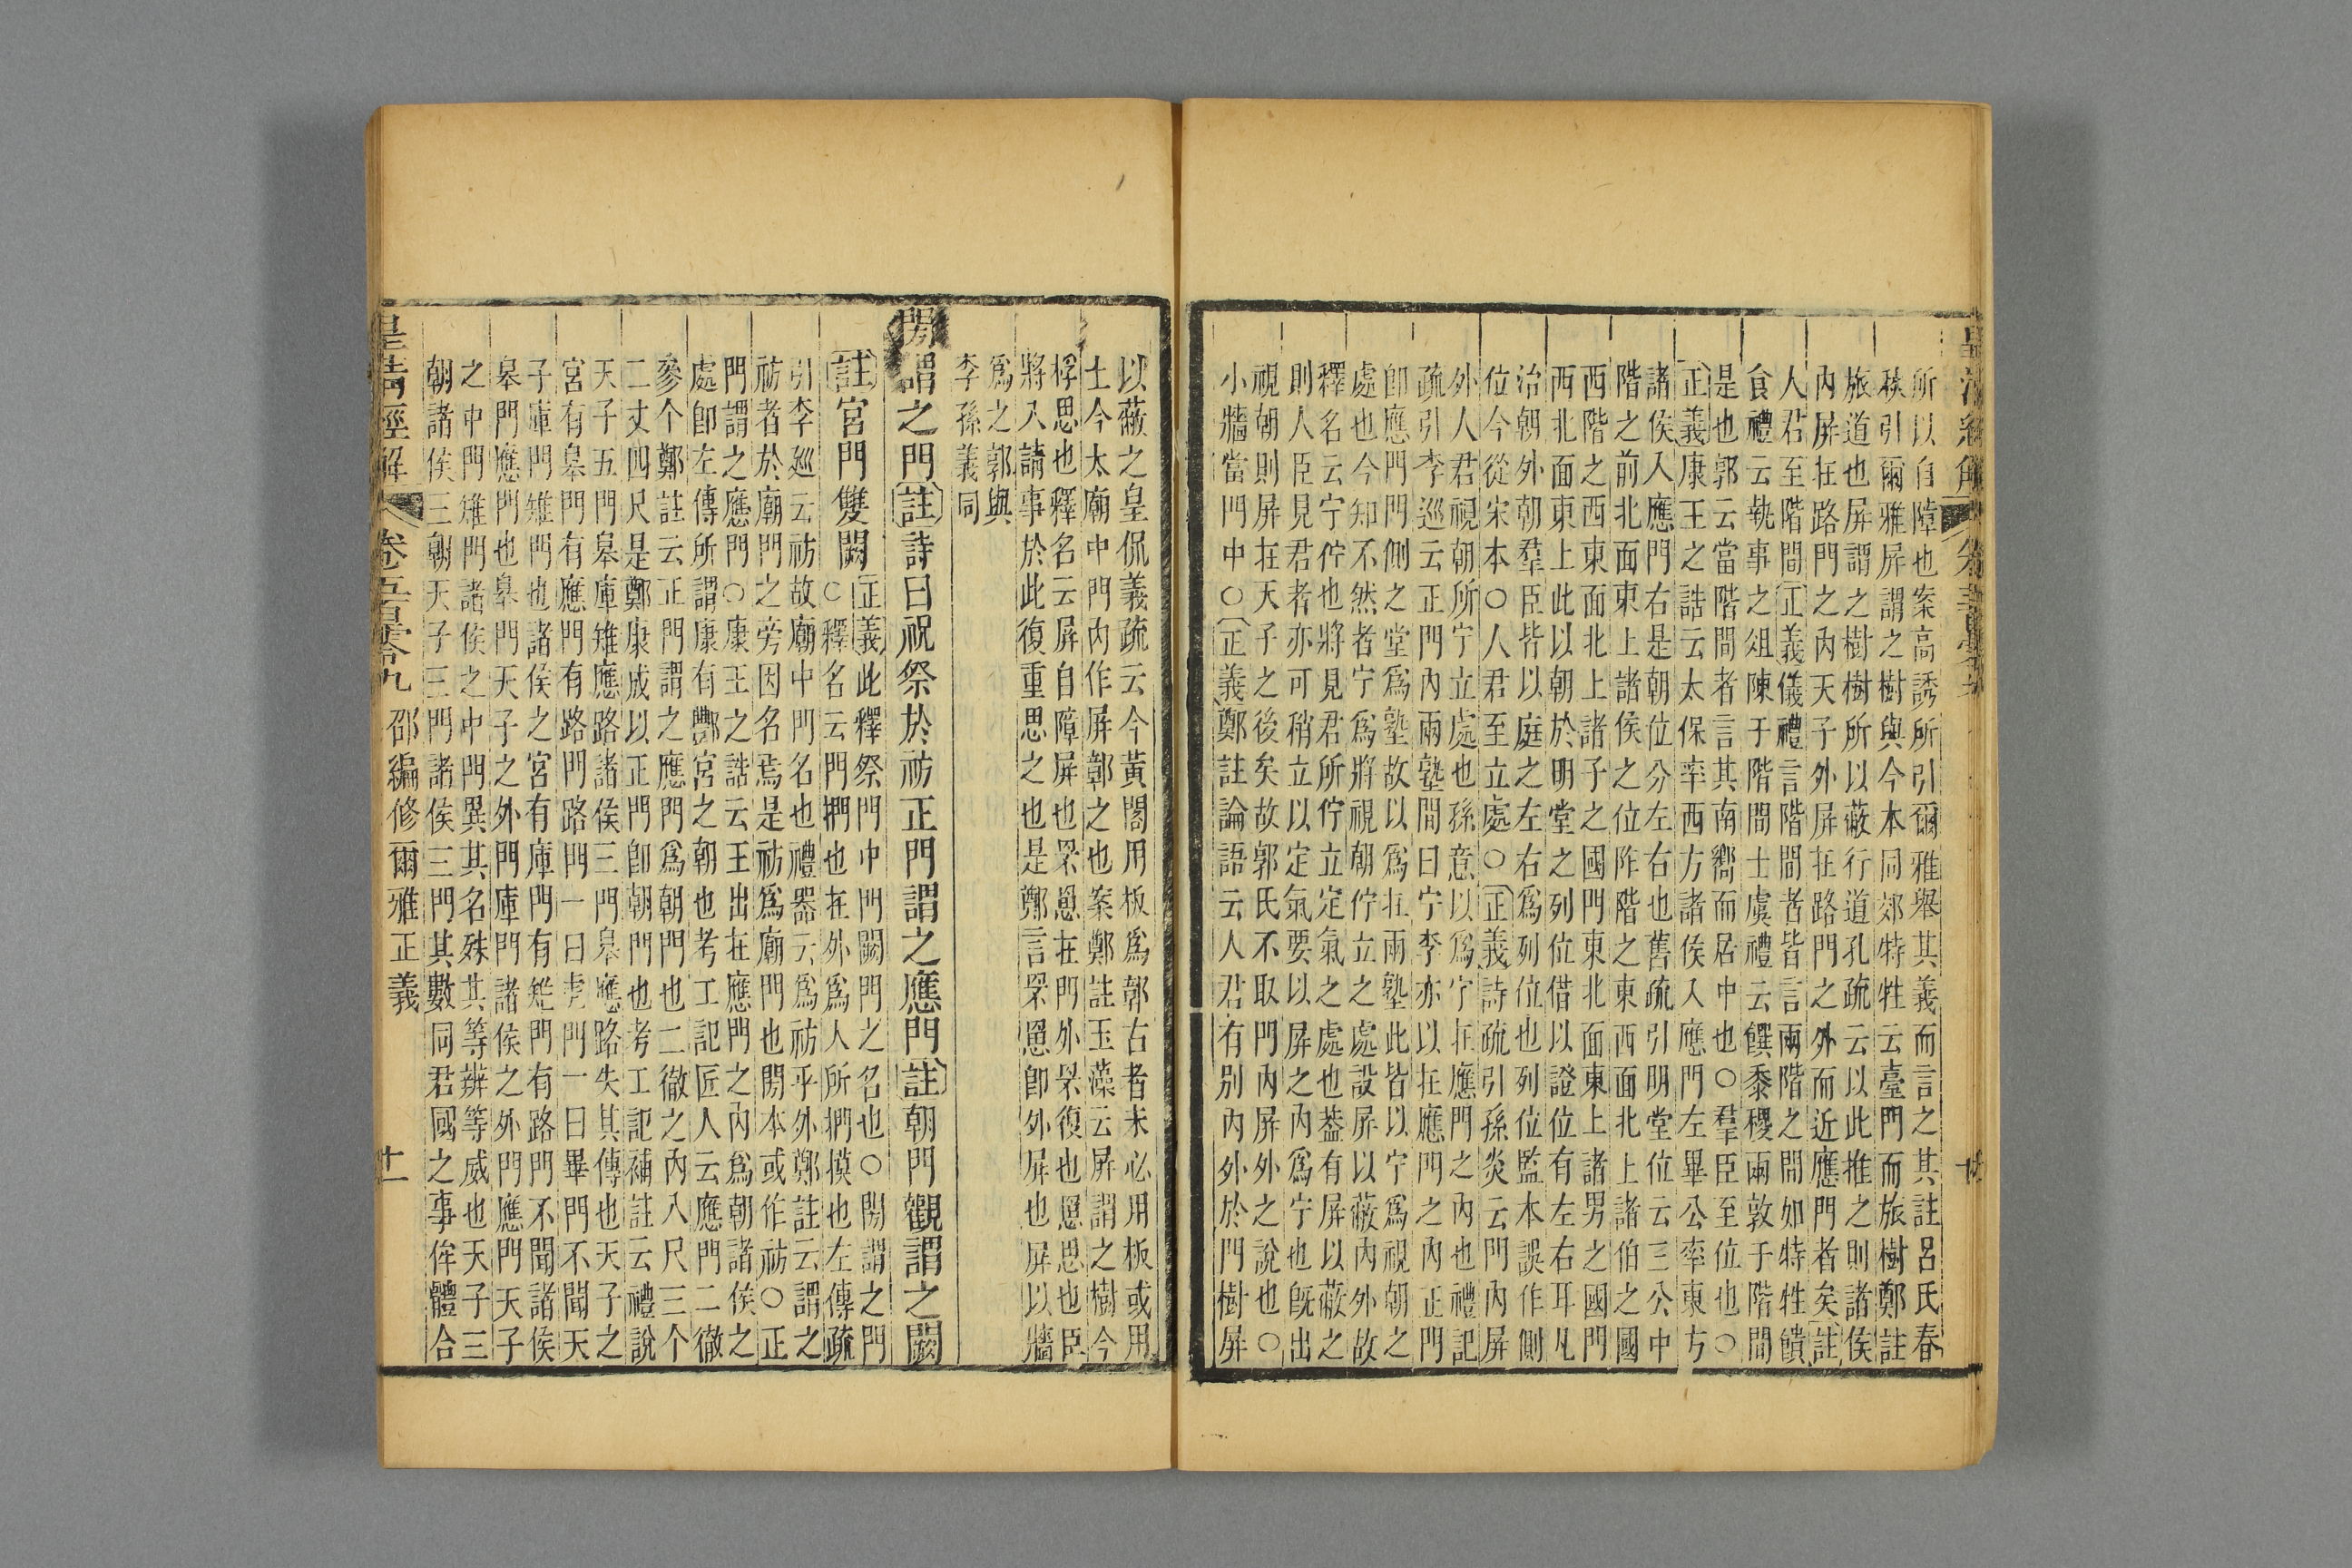 所以自障也案高誘所引爾雅舉其義而言之其註呂氏春
秩引爾雅屏謂之樹與今本同郊特牲云臺門而旅樹鄭註
旅道也屏謂之樹樹所以蔽行道孔疏云以此推之則諸侯
內屏在路門之內天子外屏在路門之外而近應門者矣註
人君至階間正義儀禮言階間者皆言兩階之間如特牲饋
食禮云執事之俎陳于階間士虞禮云饌黍稷兩敦于階間
是也郭云當階間者言其南嚮而居中也○羣臣至位也○
正義康王之誥云太保率西方諸侯入應門左畢公率東方
諸侯入應門右是朝位分左右也舊疏引明堂位云三公中
階之前北面東上諸侯之位阼階之東西面北上諸伯之國
西階之西東面北上諸子之國門東北面東上諸男之國門
西北面東上此以朝於明堂之列位借以證位有左右耳凡
治朝外朝羣臣皆以庭之左右爲列位也列位監本誤作側
位今從宋本○人君至立處○正義詩疏引孫炎云門內屏
外人君視朝所宁立處也孫意以爲宁在應門之內也禮記
疏引李巡云正門內兩塾間曰宁李亦以在應門之內正門
卽應門門側之堂爲塾故以爲在兩塾此皆以宁爲視朝之
處也今知不然者宁爲將視朝佇立之處設屏以蔽內外故
釋名云宁佇也將見君所佇立定氣之處也蓋有屏以蔽之
則人臣見君者亦可稍立以定氣要以屏之內爲宁也旣出
視朝則屏在天子之後矣故郭氏不取門內屏外之說也○
小牆當門中○正義鄭註論語云人君有別內外於門樹屏
以蔽之皇侃義疏云今黃閤用板爲鄣古者未必用板或用
土今太廟中門內作屏鄣之也案鄭註玉藻云屏謂之樹今
桴思也釋名云屏自障屏也罘罳在門外罘復也罳思也臣
將入請事於此復重思之也是鄭言罘罳卽外屏也屏以牆
爲之郭與
李孫義同
閍謂之門註詩曰祝祭於祊正門謂之應門註朝門觀謂之闕
註宮門雙闕
正義此釋祭門中門闕門之名也○閍謂之門
○釋名云門捫也在外爲人所捫摸也左傳疏
引李廵云祊故廟中門名也禮器云爲祊乎外鄭註云謂之
祊者於廟門之旁因名焉是祊爲廟門也閍本或作祊○正
門謂之應門○康王之誥云王出在應門之內爲朝諸侯之
處卽左傳所謂康有酆宮之朝也考工記匠人云應門二徹
參个鄭註云正門謂之應門爲朝門也二徹之內八尺三个
二丈四尺是鄭康成以正門卽朝門也考工記補註云禮說
天子五門皋庫雉應路諸侯三門皋應路失其傳也天子之
宮有皋門有應門有路門路門一曰虎門一曰畢門不聞天
子庫門雉門也諸侯之宮有庫門有雉門有路門不聞諸侯
皋門應門也皋門天子之外門庫門諸侯之外門應門天子
之中門雉門諸侯之中門異其名殊其等辨等威也天子三
朝諸侯三朝天子三門諸侯三門其數同君國之事侔體合
皇清經解 卷五百零九 邵編修爾雅正義 十一